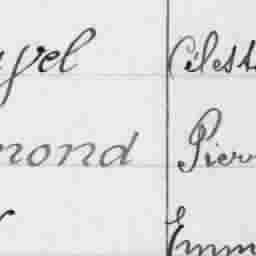 yel Célest
mond Pierr
Emm